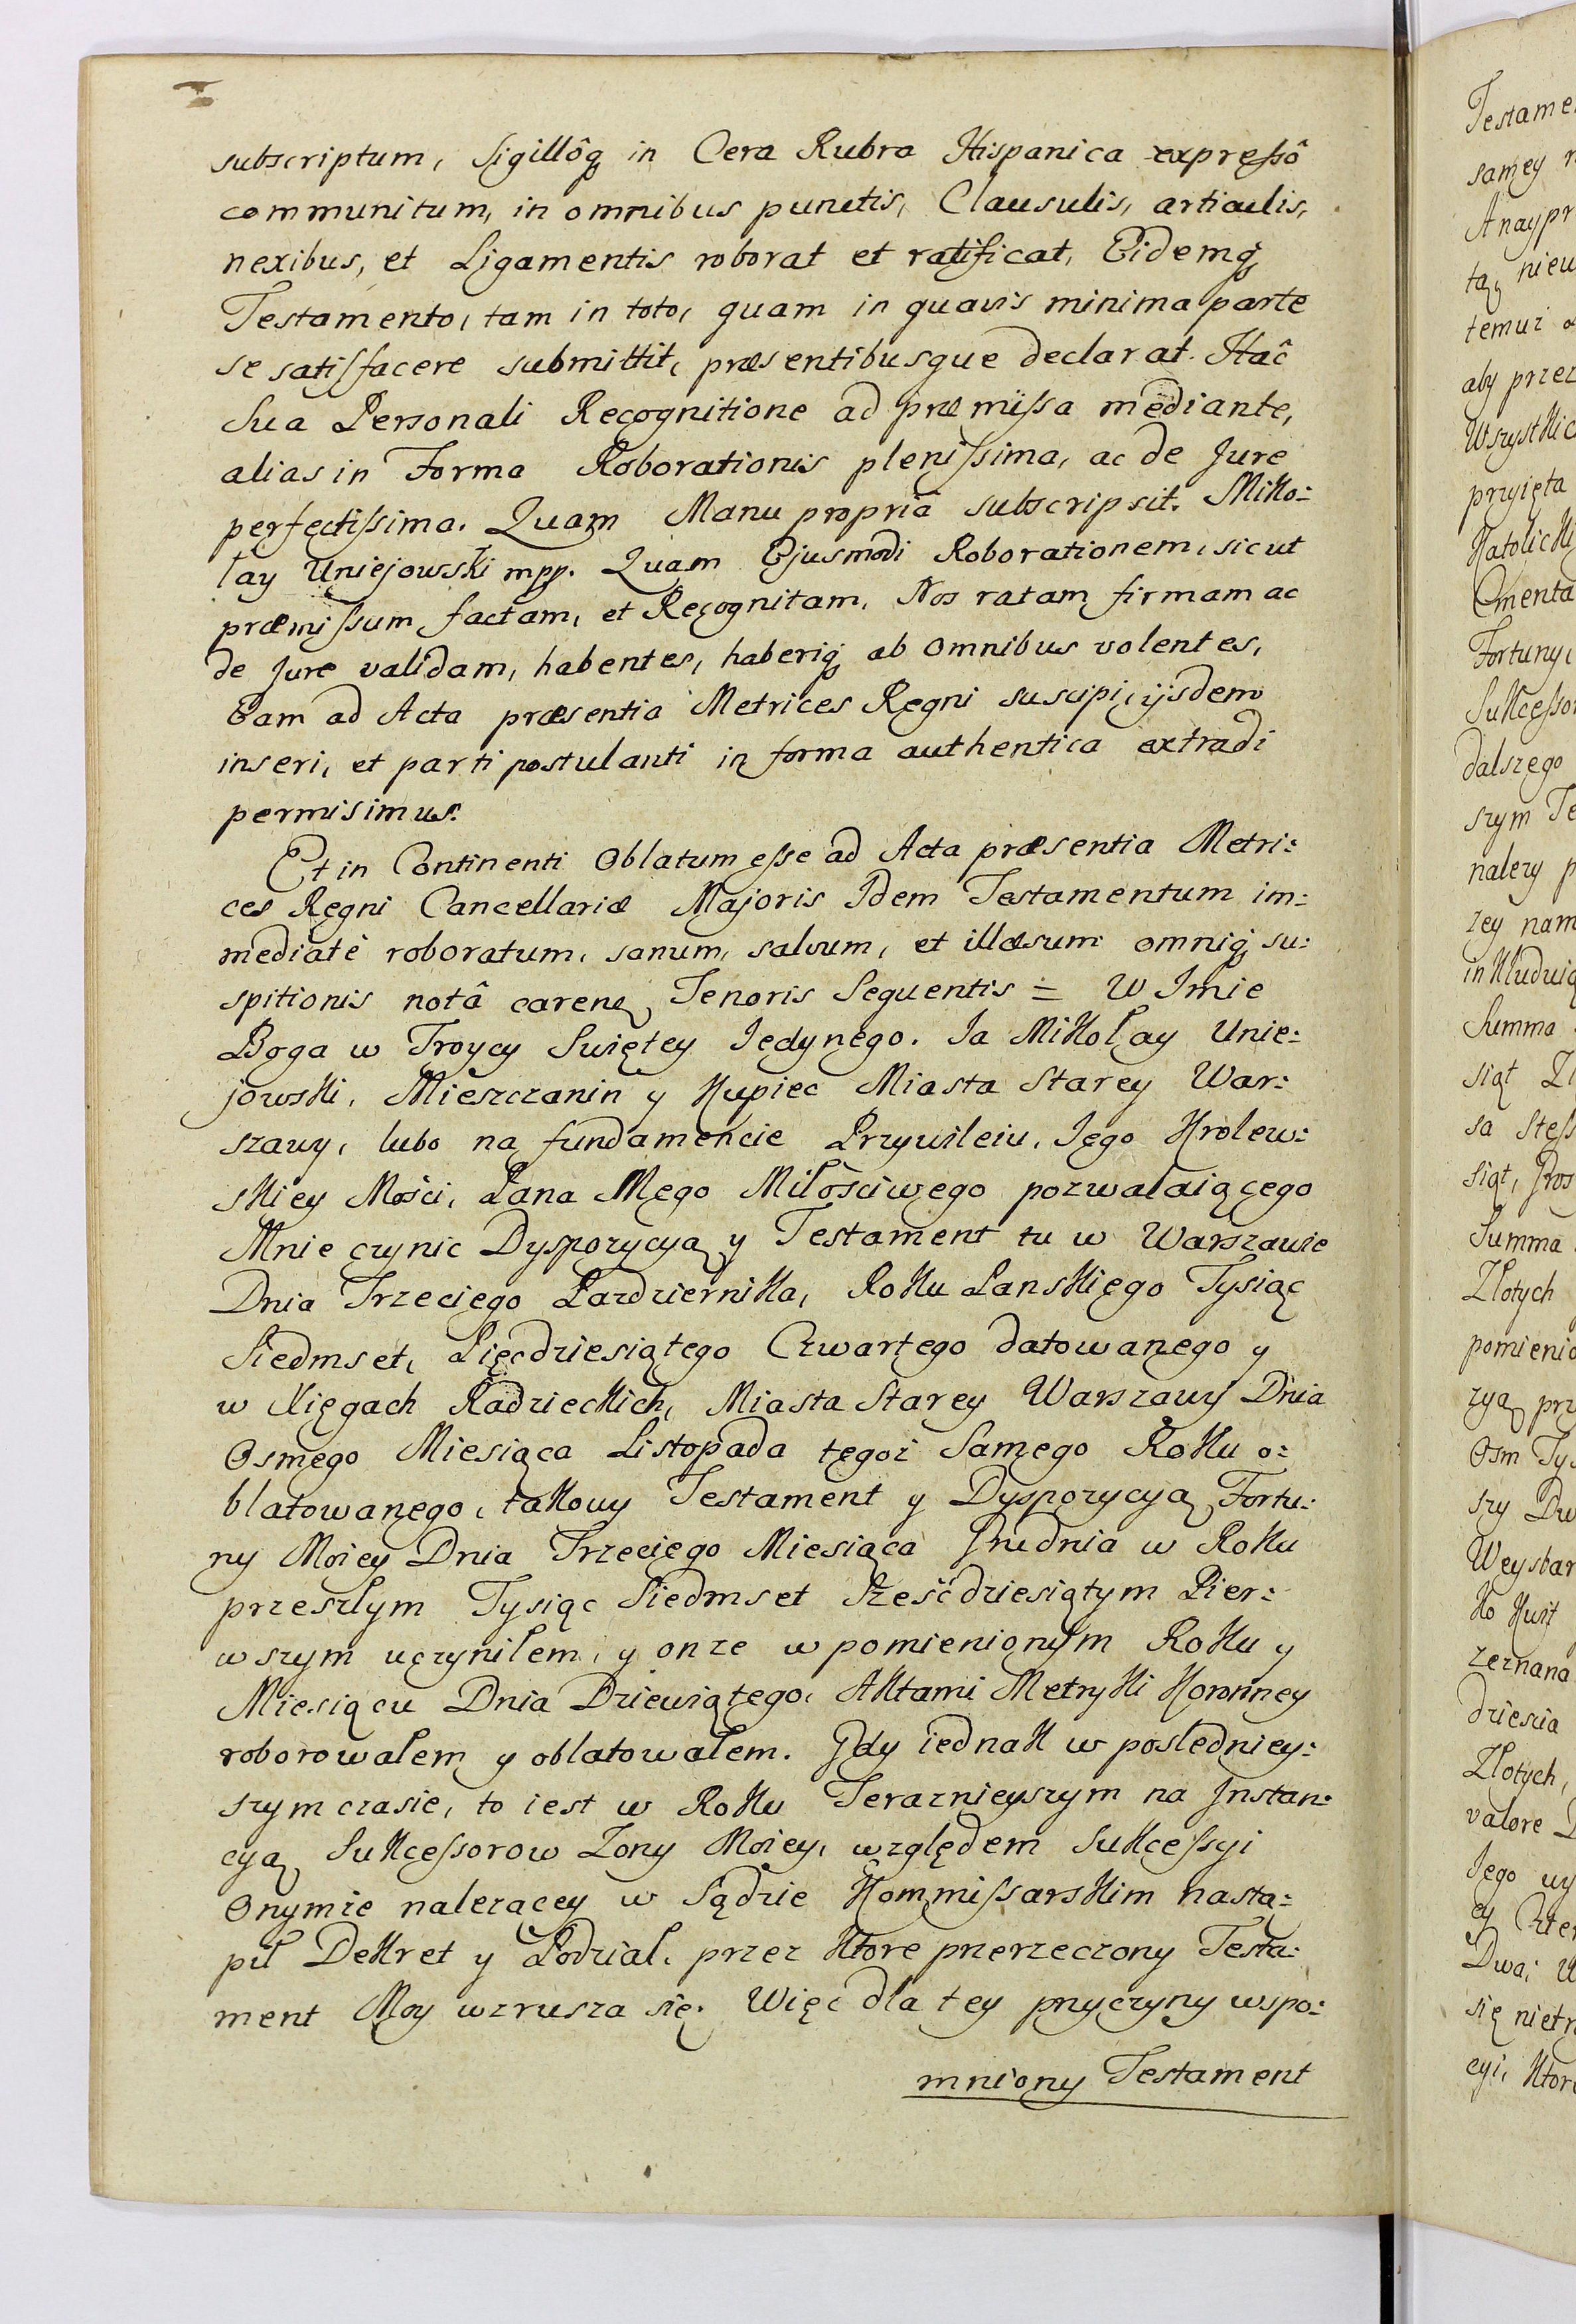 subscriptum, Sigillôq in Cera Rubra Hispanica expreſsô
communitum, in omnibus punctis, Clausulis, articulis,
nexibus, et Ligamentis roborat et ratificat, Eidemq
Testamento, tam in toto, quam in quavis minima parte
se satisfacere submittit, præsentibusque declarat. Hac̑
Sua Personali Recognitione ad præmiſsa mediante,
alias in Forma Roborationis pleniſsima, ac de Jure
perfectiſsima. Quam Manu propria subscripsit. Miko:
lay Uniejowski mpp. Quam Ejusmodi Roborationem, sicut
præmiſsum factam, et Recognitam, Nos ratam firmam ac
de Jure validam, habentes, haberiq ab omnibus volentes,
Eam ad Acta præsentia Metrices Regni suscipi, ijsdem
inseri, et parti postulanti in forma authentica extradi
permisimus.
Et in Continenti Oblatum eſse ad Acta præsentia Metri:
ces Regni Cancellariæ Majoris Idem Testamentum im:
mediatè roboratum, sanum, salvum, et illæsum omniq su:
spitionis notâ carens, Tenoris Sequentis = W Imie
Boga w Troycy Swiętey Jedynego. Ja Mikołay Unie:
jowski, Mieszczanin y Kupiec Miasta Starey War:
szawy, lubo na fundamencie Przywileiu, Jego Krolew:
skiey Mości, Pana Mego Miłościwego pozwalaiącego
Mnie czynic Dyspozycyą y Testament tu w Warszawie
Dnia Trzeciego Pazdziernika, Roku Panskiego Tysiąc
Siedmset, Pięcdziesiątego Czwartego datowanego y
w Xięgach Radzieckich, Miasta Starey Warszawy Dnia
Osmego Miesiąca Listopada tegoż Samego Roku o:
blatowanego, takowy Testament y Dyspozycyą Fortu:
ny Moiey Dnia Trzeciego Miesiąca Grudnia w Roku
przeszłym Tysiąc Siedmset Sześćdziesiątym Pier:
wszym uczyniłem, y onze w pomienionym Roku y
Miesiącu Dnia Dziewiątego, Aktami Metryki Koronney
roborowałem y oblatowałem. Gdy iednak w posledniey:
szym czasie, to iest w Roku Teraznieyszym na Instan:
cyą Sukceſsorow Zony Moiey, względem Sukceſsyi
Onymże nalezącey w Sądzie Kommiſsarskim nastą:
pił Dekret y Podział, przez ktore przerzeczony Testa:
ment Moy wzrusza się. Więc dla tey przyczyny wspo:
mniony Testament
Testame
samey
Anaypr
tą, nieu
temuż
aby przez
Wszystkic
przyięta
Katolicki
Cmenta
Fortuny,
Sukceſsor
dalszego
szym Te
nalezy p
zey nam
inkludui
Summa
siąt
sa Steſs
siąt, Gros
Summa
Złotych
pomienio
zyą prz
Osm Ty
szy Dw
Weysbar
ko Kwit
zeznana
dziescia
Złotych,
valore
Jego wy
ey Czter
Dwa;
się nietr
cyi, ktor